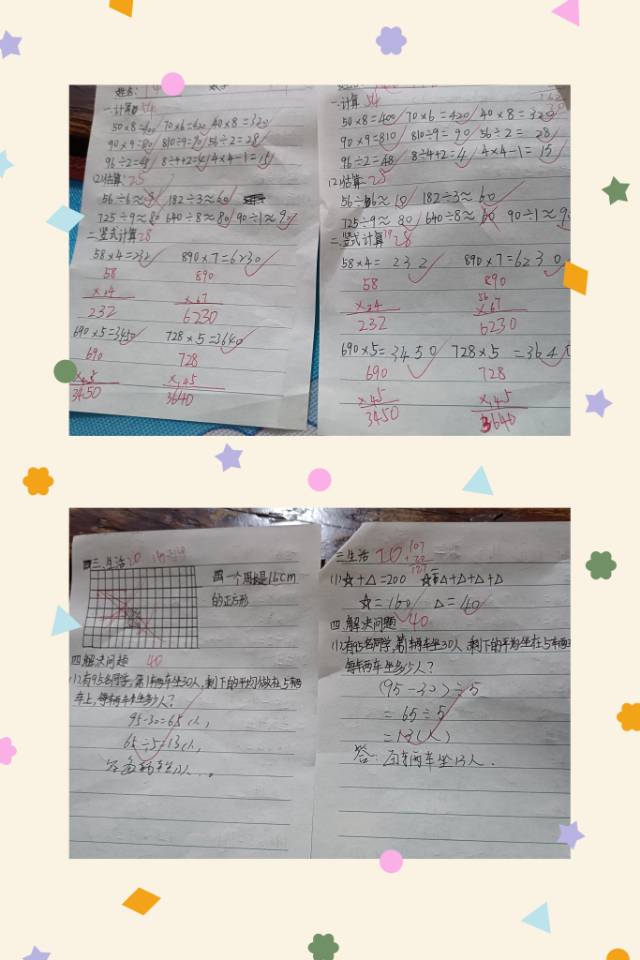 姓名:
一.计算 54
50×8=400 70×6=420 40×8=320
90×9=80 810÷9=90 56÷2=28
96÷2=48 8÷4+2=4 4×4-1=15
(2)估算: 25
56÷6≈9 182÷3≈60
725÷9≈80 640÷8≈80 90÷1≈9
二.竖式计算 28
58×4=232 890×7=6230
58 890
232 6230
690×5=3450 728×5=3640
690 728
3450 3640
一.计算 54
50×8=400 70×6=420 40×8=320
90×9=810 810÷9=90 56÷2=28
96÷2=48 8÷4+2=4 4×4-1=15
(2)估算: 25
56÷6≈10 182÷3≈60
725÷9≈80 640÷8≈80 90÷1≈9
二.竖式计算 28
58×4=232 890×7=6230
58 890
232 6230
690×5=3450 728×5=3640
690 728
×45 ×45
3450 3640
三.生活
画一个周长是16cm
的正方形
四.解决问题 40
(1)有95名同学,第1辆车坐30人,剩下的平均坐在5辆
车上,每辆车坐多少人?
95-30=65(人)
65÷5=13(人)
三.生活 20
(1)☆+△=200 ☆=△+△+△+△
☆=160 △=40
四.解决问题 40
(1)有95名同学,第1辆车坐30人,剩下的平均坐在5辆车
每辆车坐多少人?
(95-30)÷5
=65÷5
=13(人)
答:每辆车坐13人.